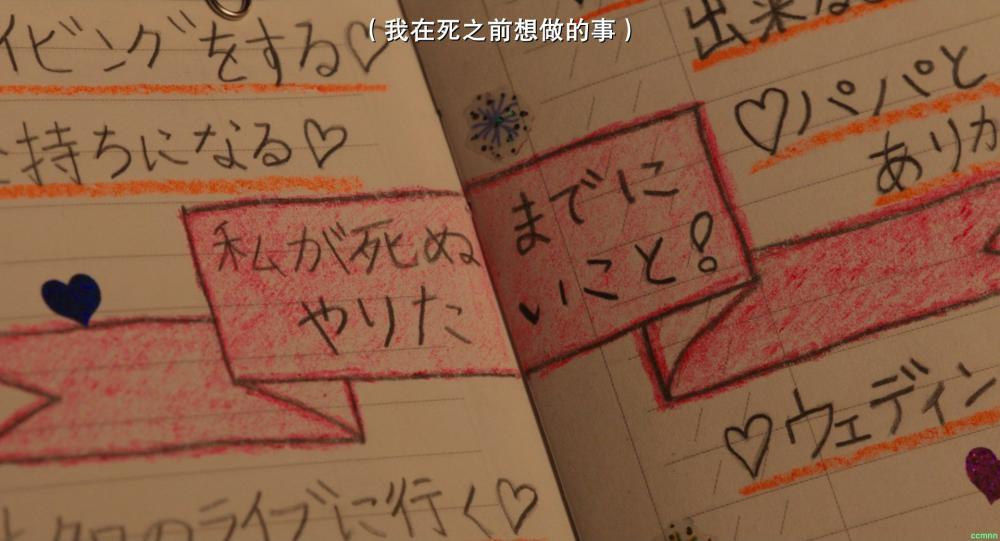 （我在死之前想做的事）
イビングをする♡
持ちになる♡
私が死ぬまでに
やりたいこと!
ライブに行く♡
出来な
♡パパと
ありか
♡ウェディン
ccmnn